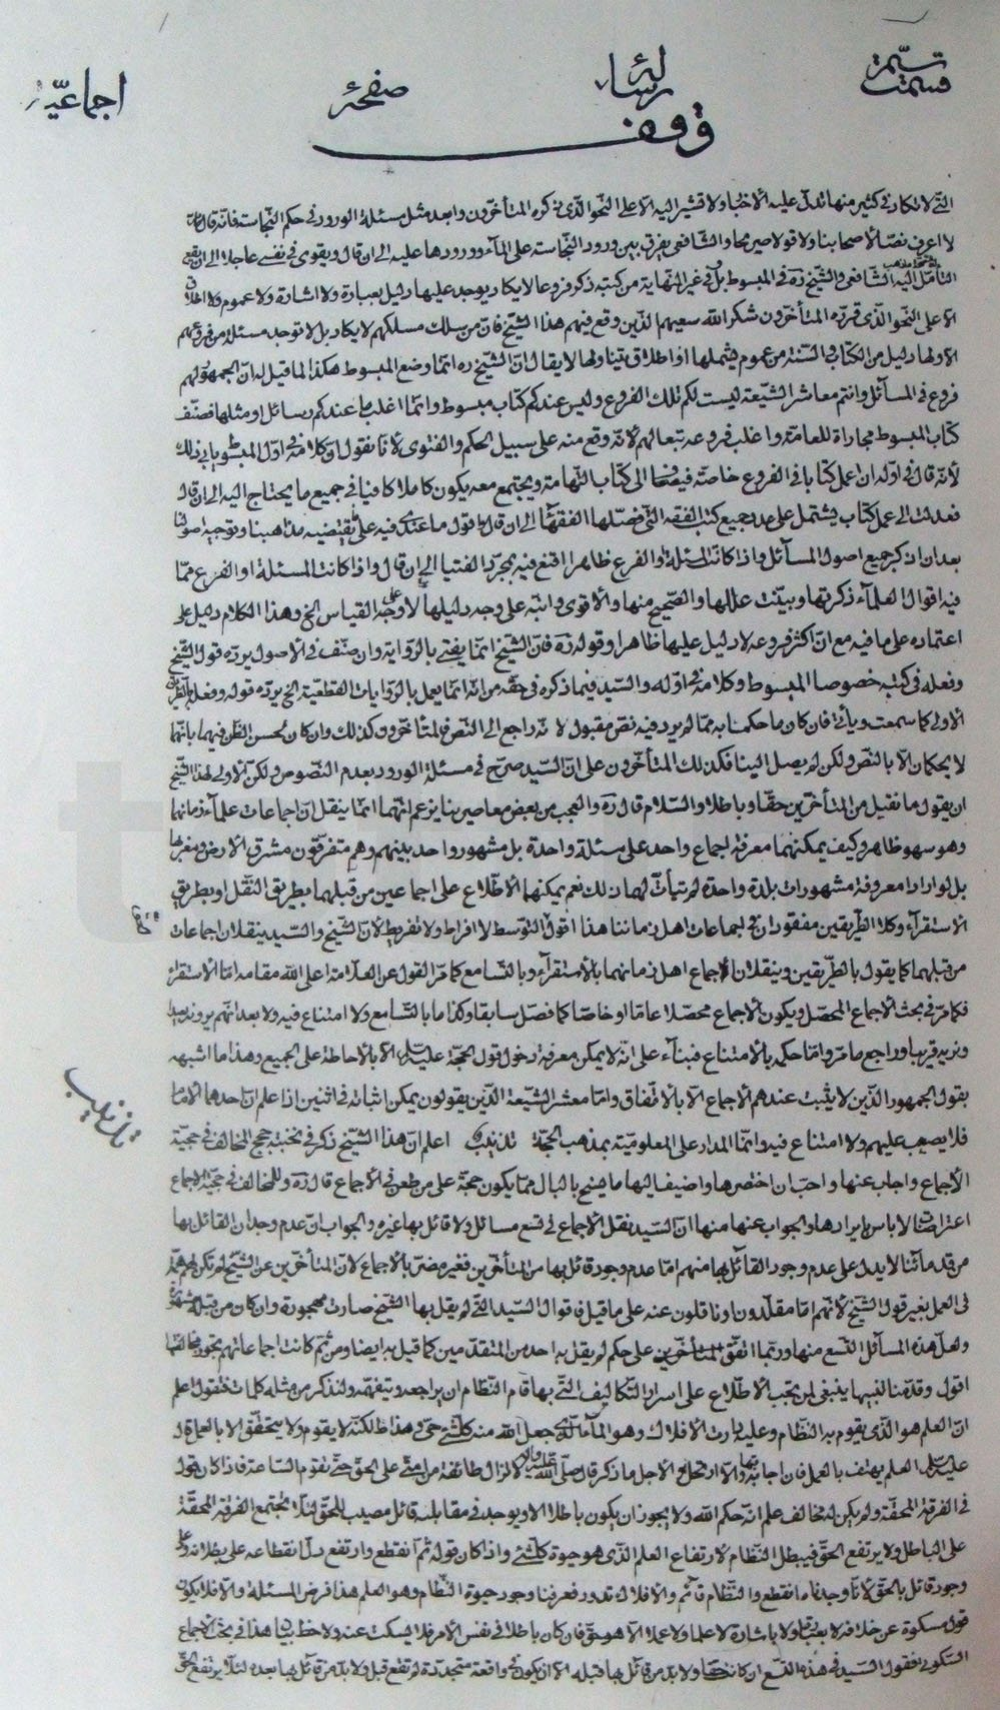 قسمت ستيمة رسالهٔ صفحهٔ اجماعيّه
وقف
التى لا تكاد فى كثير منها تدل عليه الأخبار ولا تشير اليه الا على النحو الذى ذكره المتأخرون وابعد مثل مسئلة الورود فى حكم النجاسة فانه قال
لا اعرف نصّا لأصحابنا ولا قولا صريحا والشافعى يفرق بين ورود النجاسة على الماء وورودها عليه الى ان قال ويقوى فى نفسى عاجلا الى ان يقع
التأمل اليه الشافعى والشيخ ره فى المبسوط بل فى غير النهاية من كتبه ذكر فروعا لا يكاد يوجد عليها دليل بعبارة ولا اشارة ولا عموم ولا اطلاق
الا على النحو الذى قرره المتأخرون شكر الله سعيهم الذين وقع فيهم هذا الشيخ فان من سلك مسلكهم لا يكاد بل لا توجد مسئلة من فروعهم
الا ولها دليل من الكتاب والسنة من عموم يشملها او اطلاق يتناولها لا يقال ان الشيخ ره انما وضع المبسوط هكذا لما قيل له ان الجمهور لهم
فروع فى المسائل وانتم معاشر الشيعة ليست لكم تلك الفروع وليس عندكم كتاب مبسوط وانما اغلب ما عندكم رسائل او مثلها فصنف
كتاب المبسوط مجاراة للعامة واغلب فروعه تبعا لهم لانه وقع منه على سبيل الحكم والفتوى لأنا نقول ان كلامه فى اول المبسوط يأبى ذلك
لأنه قال فى اوله ان اعمل كتابا فى الفروع خاصة فيضاف الى كتاب النهاية ويجتمع معه يكون كاملا كافيا فى جميع ما يحتاج اليه الى ان قال
فعدلت الى عمل كتاب يشتمل على عدد جميع كتب الفقه التى فصلها الفقهاء الى ان قال واقول ما عندى فيه على ما يقتضيه مذاهبنا وتوجبه اصولنا
بعد ان اذكر جميع اصول المسائل واذا كانت المسئلة والفرع ظاهرا اقنع فيه بمجرد الفتيا الى ان قال واذا كانت المسئلة او الفرع مما
فيه اقوال العلماء ذكرتها وبينت عللها والصحيح منها والأقوى وانبه على وجه دليلها لا على وجه القياس الخ وهذا الكلام دليل على
اعتماده على ما فيه مع ان اكثر فروعه لا دليل عليها ظاهرا وقوله ره فان الشيخ انما يفتى بالرواية وان صنف فى الأصول يرده قول الشيخ
وفعله فى كتبه خصوصا المبسوط وكلامه فى اوله والسيد فيما ذكره فى حقه من انه انما يعمل بالروايات القطعية الخ يرده قوله وفعله
الأولى كما سمعت ويأتى فان كان ما حكما به مما لم يرد فيه نص مقبول لانه راجع الى النص فالمتأخرون كذلك وان كان لحسن الظن فيهما بانهما
لا يحكمان الا بالنص ولكن لم يصل الينا فكذلك المتأخرون على ان السيد صرح فى مسئلة الورود بعدم النصوص ولكن الأولى لهذا الشيخ
ان يقول ما نقبل من المتأخرين حقا وباطلا والسلام قال ره والعجب من بعض معاصرينا يزعم انهما انما ينقلان اجماعات علماء زمانهما
وهو سهو ظاهر وكيف يمكنهما معرفة اجماع واحد على مسئلة واحدة بل مشهور واحد بينهم وهم متفرقون مشرق الأرض ومغربها
بل لو ارادا معرفة مشهورات بلدة واحدة لم يتأت لهما ذلك نعم يمكنهما الأطلاع على اجماعين من قبلهما بطريق النقل او بطريق
الأستقراء وكلا الطريقين مفقودان فى اجماعات اهل زماننا هذا اقول التوسط لا افراط ولا تفريط لأن الشيخ والسيد ينقلان اجماعات
من قبلهما كما يقول بالطريقين وينقلان الأجماع اهل زمانهما بالأستقراء وبالتسامع كما مر القول عن العلامة اعلى الله مقامه اما الأستقراء
فكما مر فى بحث الأجماع المحصل ويكون الأجماع محصلا عاما او خاصا كما فصل سابقا وكذا ما بالتسامع ولا امتناع فيه ولا بعد انهم يرونه بعيدا
ونريه قريبا وراجع ما مر واما حكمه بالأمتناع فبناء على انه لا يمكن معرفة دخول قول الحجة عليه السلام الا بالأحاطة على الجميع وهذا ما اشبهه
بقول الجمهور الذين لا يثبت عندهم الأجماع الا بالأتفاق واما معشر الشيعة الذين يقولون يمكن اثباته فى اثنين اذا علم ان احدهما الأمام
فلا يصعب عليهم ولا امتناع فيه وانما المدار على المعلومية بمذهب الحجة تذنيب اعلم ان هذا الشيخ ذكر فى نخبته حجج المخالف فى حجية
الأجماع واجاب عنها واحب ان اختصرها واضيف اليها ما يسنح بالبال مما يكون حجة على من طعن فى الأجماع قال ره وللمخالف فى حجية الأجماع
اعتراضات لا باس بايرادها والجواب عنها منها ان السيد نقل الأجماع فى تسع مسائل ولا قائل بها غيره والجواب ان عدم وجدان القائل بها
من قدمائنا لا يدل على عدم وجود القائل بها منهم اما عدم وجود قائل بها من المتأخرين فغير مضر بالأجماع لان المتأخرين عن الشيخ لم تكن لهم همة
فى العمل بغير قول الشيخ لأنهم اما مقلدون او ناقلون عنه على ما قيل فاقوال السيد التى لم يقل بها الشيخ صارت مهجورة وان كان من قبله مشهورة
ولعل هذه المسائل التسع منها وربما اتفق المتأخرين على حكم لم يقل به احد من المتقدمين كما قيل به ايضا ومن ثم كانت اجماعاتهم
اقول وقد منا لنبيها ينبغى لمن يحب الأطلاع على اسرار التكاليف التى بها قام النظام ان يراجعه ويتفهمه ولنذكر من مثله كلمات فنقول اعلم
ان العلم هو الذى يقوم به النظام وعليه دارت الأفلاك وهو الماء الذى جعل الله منه كل شئ حى فى هذا ظ لكنه لا يقوم ولا يتحقق الا بالعمل قال
عليه السلام العلم يهتف بالعمل فان اجابه والا ارتحل ولأجل ما ذكر قال صلى الله عليه وآله لا تزال طائفة من امتى على الحق حتى تقوم الساعة فاذا كان قول
فى الفرقة المحقة ولم يكن له مخالف علم انه حكم الله ولا يجوز ان يكون باطلا الا ويوجد فى مقابلته قائل مصيب للحق لئلا تجتمع الفرقة المحقة
على الباطل ولا يرتفع الحق فيبطل النظام لارتفاع العلم الذى هو حيوة كل شئ واذا كان قوله ثم انقطع وارتفع دل انقطاعه على بطلانه وعلى
وجود قائل بالحق لأنا وجدناه انقطع والنظام قائم والأفلاك تدور فعرفنا وجود حيوة النظام وهو العلم هذا فرض المسئلة والا فلا يكون
قول مسكوة عن خلافه لا بعبارة ولا باشارة لا علما ولا عملا الا هو حق فان كان باطلا فى نفس الأمر فلا يسكت عنه ولاحظ بيانها هذا فى بحث الأجماع
السكوتى فقول السيد فى هذه التسع ان كانت حقا ولا بد من قائل بها قبله الا ان يكون فى واقعة متجددة لم تقع قبل ولا بد من قائل بها بعده لئلا يرتفع الحق
تذنيب